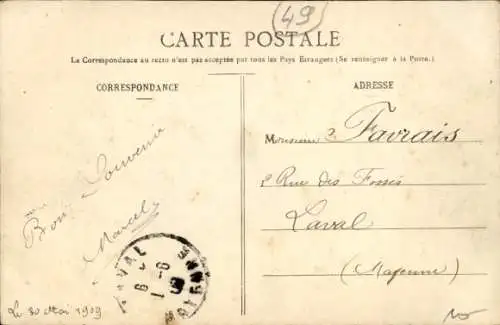 49
CARTE POSTALE
La Correspondance au recto n'est pas acceptée par tous les Pays Etrangers (Se renseigner à la Poste.)
CORRESPONDANCE
ADRESSE
Bon Souvenir
Marcel
Le 30 Mai 1909
Monsieur Favrais
2 Rue des Fossés
Laval
(Mayenne)
LAVAL
MAYENNE